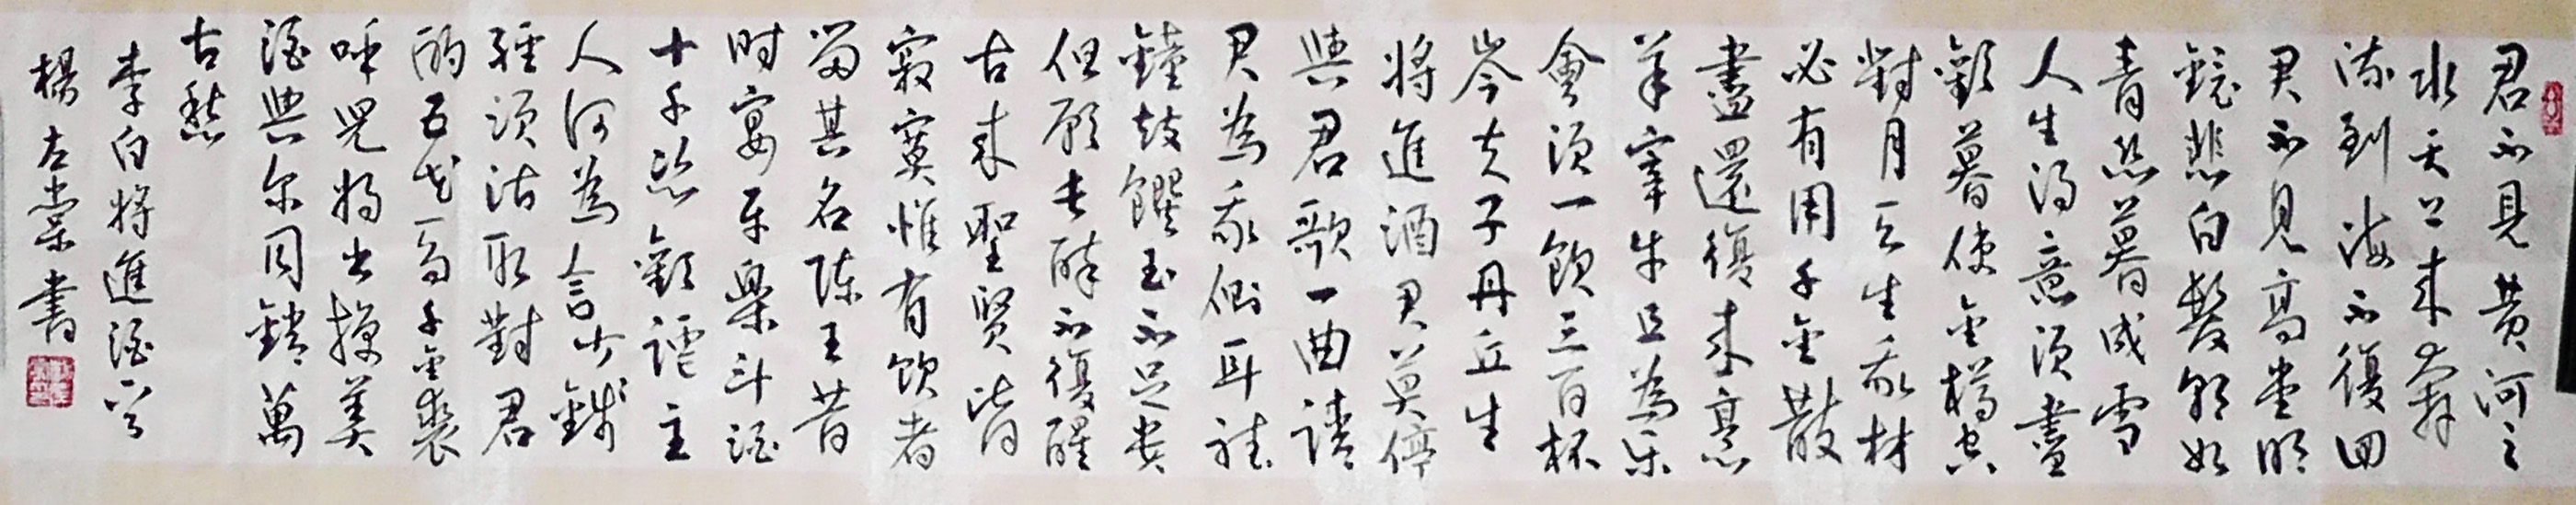 君不見黄河之
水天上来奔
流到海不復回
君不見高堂明
鏡悲白髮朝如
青絲暮成雪
人生得意須盡
歡暮使金樽空
對月天生我材
必有用千金散
盡還復来烹
羊宰牛且為乐
會須一飲三百杯
岑夫子丹丘生
將進酒君莫停
與君歌一曲請
君為我側耳聽
鐘鼓饌玉不足貴
但願長醉不復醒
古来聖賢皆
寂寞惟有飲者
留其名陳王昔
时宴平樂斗酒
十千恣歡謔主
人何為言少錢
徑須沽取對君
酌五花馬千金裘
呼兒將出換美
酒與尔同銷萬
古愁
李白將進酒
楊左棠書